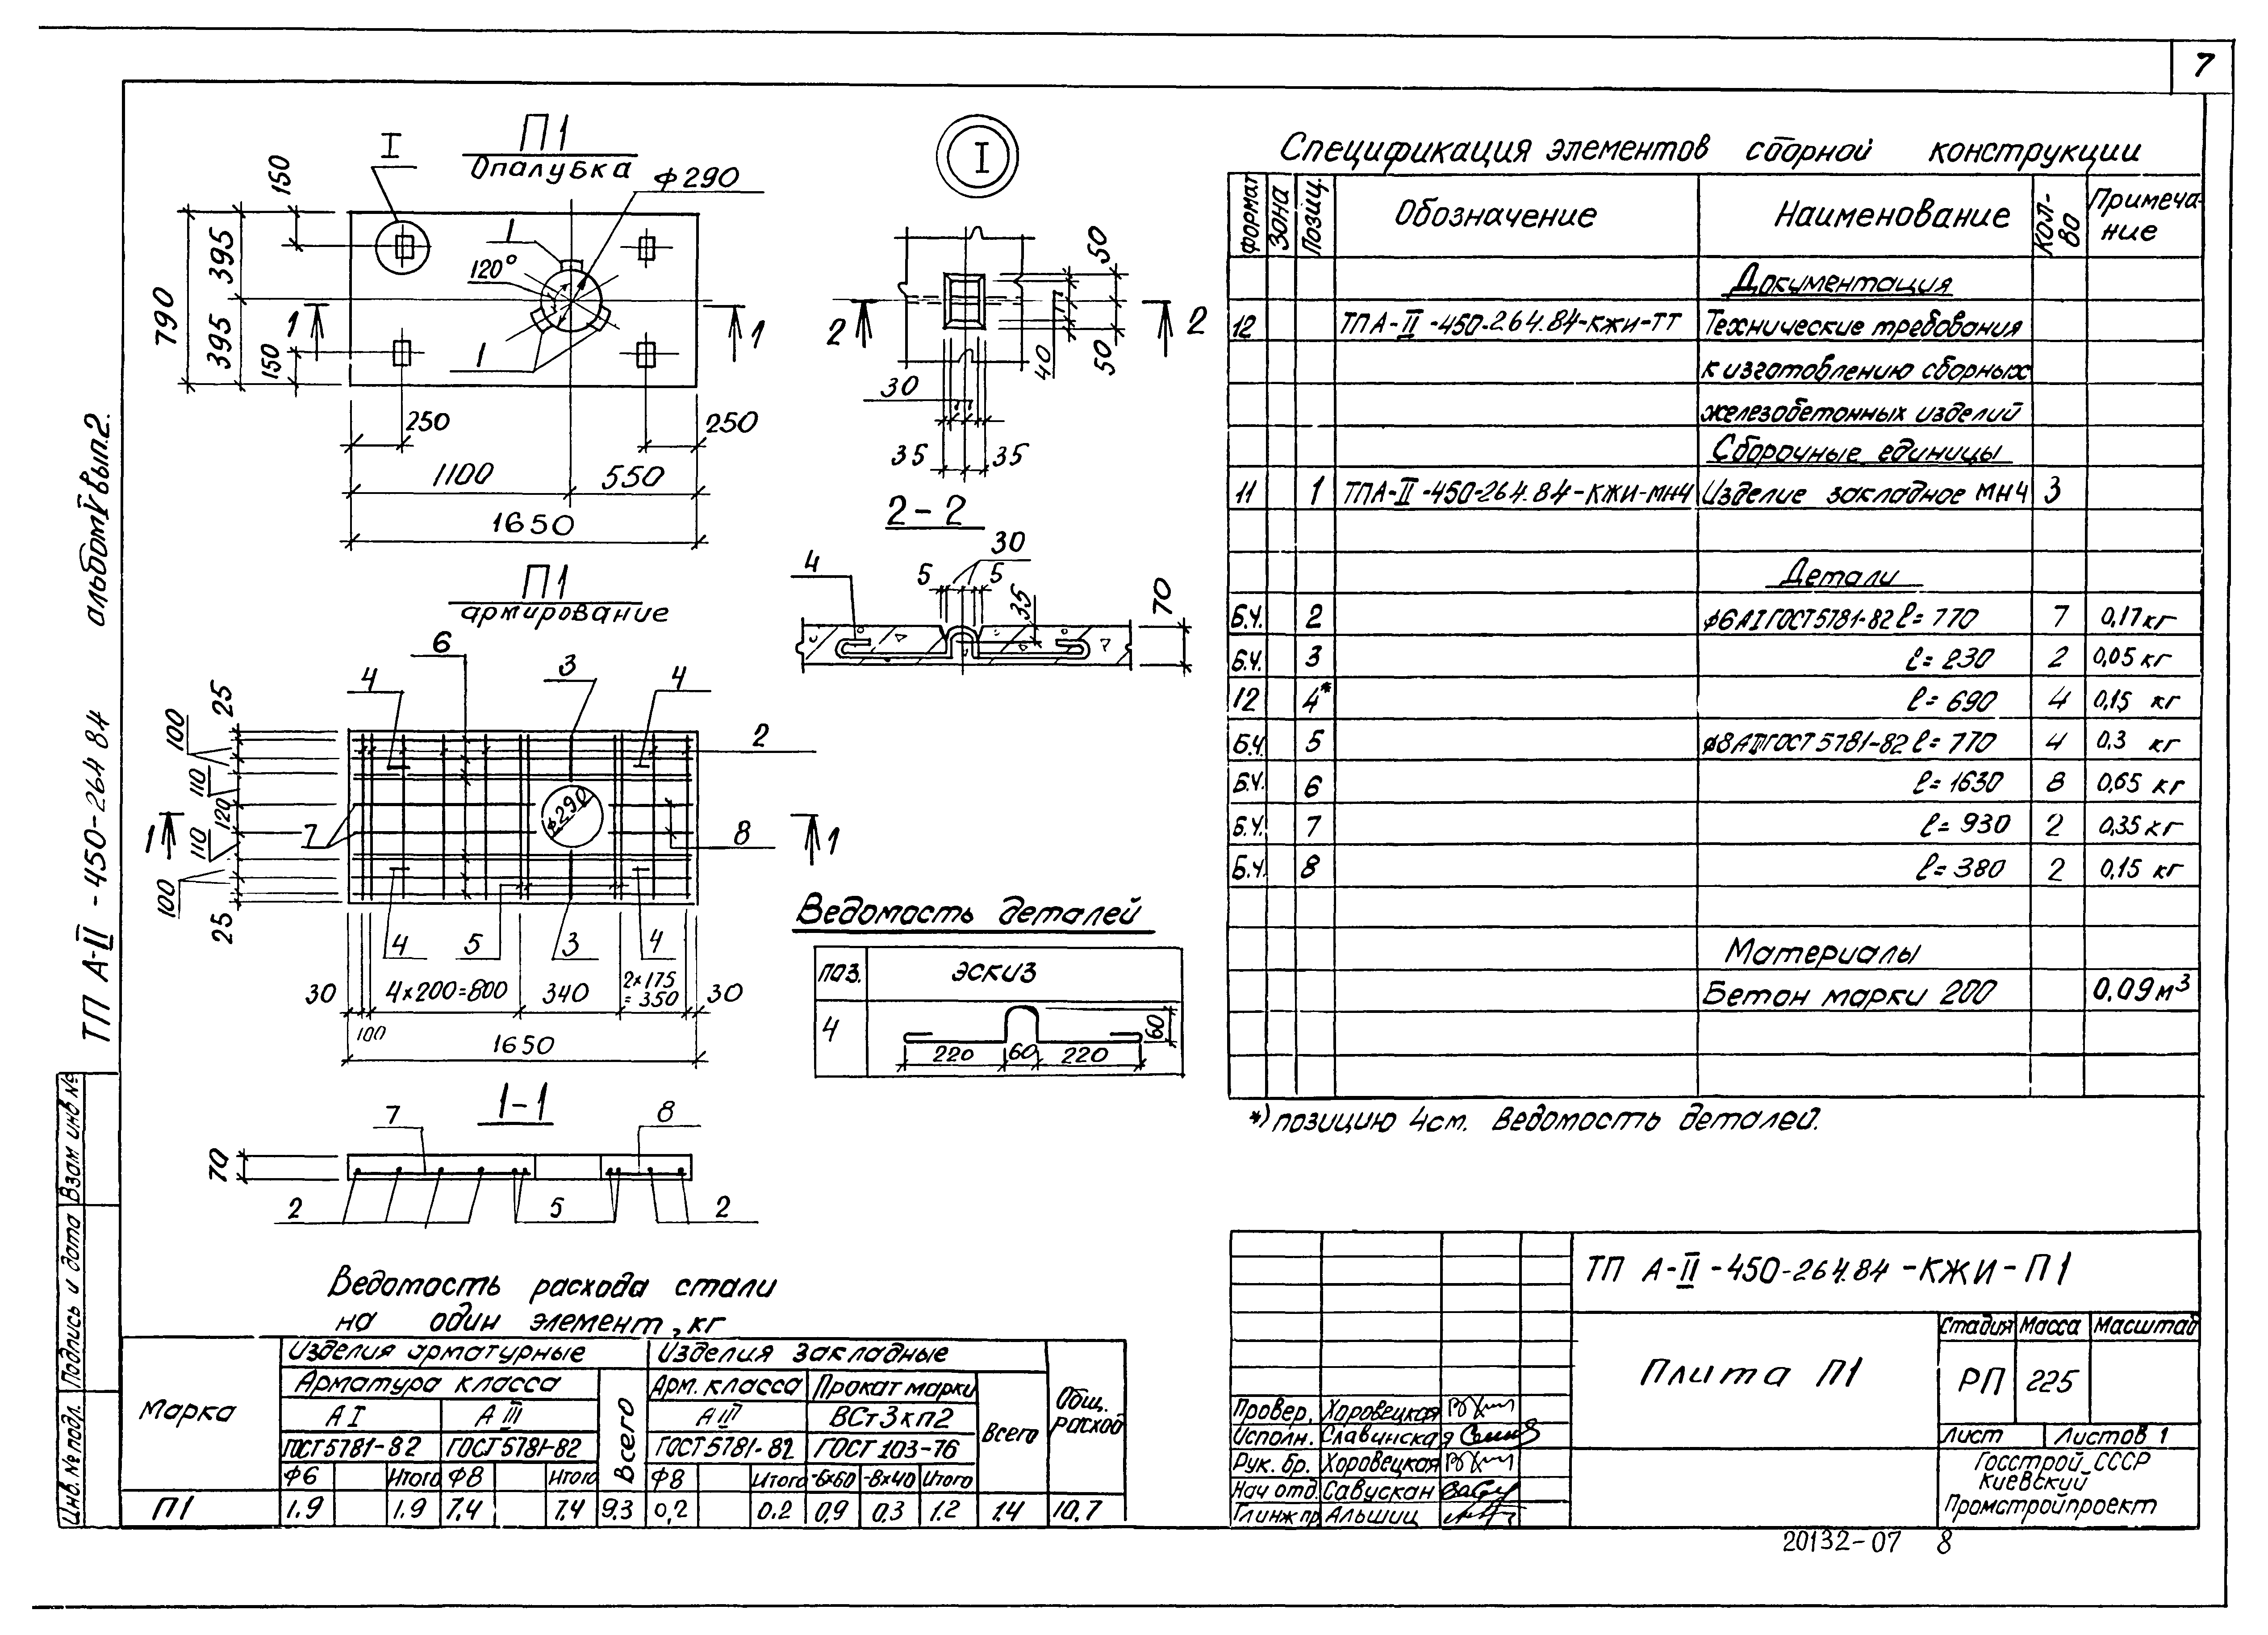 7
П1
Опалубка
I
ф290
1
120°
1
150
395
790
395
150
1
1
250
250
1100
550
1650
I
50
2
2
40
50
30
35
35
2-2
30
4
5
5
35
70
П1
армирование
6
4
3
4
2
25
100
110
120
110
100
25
1
7
ф290
8
1
4
5
3
4
30
4х200=800
340
2х175
=350
30
100
1650
1-1
7
8
70
2
5
2
Ведомость деталей
поз.
эскиз
4
220
60
220
60
Спецификация элементов сборной конструкции
Формат
Зона
Позиц.
Обозначение
Наименование
Кол-во
Примечание
Документация
12 ТП А-II-450-264.84-КЖИ-ТТ Технические требования
к изготовлению сборных
железобетонных изделий
Сборочные единицы
11 1 ТП А-II-450-264.84-КЖИ-МН4 Изделие закладное МН4 3
Детали
Б.Ч. 2 ф6АI ГОСТ 5781-82 ℓ=770 7 0,17 кг
Б.Ч. 3 ℓ=230 2 0,05 кг
12 4* ℓ=690 4 0,15 кг
Б.Ч. 5 ф8АIII ГОСТ 5781-82 ℓ=770 4 0,3 кг
Б.Ч. 6 ℓ=1630 8 0,65 кг
Б.Ч. 7 ℓ=930 2 0,35 кг
Б.Ч. 8 ℓ=380 2 0,15 кг
Материалы
Бетон марки 200 0,09 м³
*) позицию 4 см. Ведомость деталей.
Ведомость расхода стали
на один элемент, кг
Марка
Изделия арматурные
Изделия закладные
Арматура класса
Всего
Арм. класса
Прокат марки
Всего
Общ. расход
А I
А III
А III
ВСт3кп2
ГОСТ 5781-82
ГОСТ 5781-82
ГОСТ 5781-82
ГОСТ 103-76
Ф6 Итого Ф8 Итого Ф8 Итого -6х60 -8х40 Итого
П1 1.9 1.9 7.4 7.4 9.3 0,2 0.2 0.9 0.3 1.2 1.4 10.7
ТП А-II-450-264.84-КЖИ-П1
Плита П1
Стадия Масса Масштаб
РП 225
Лист Листов 1
Госстрой СССР
Киевский
Промстройпроект
Провер. Хоровецкая
Исполн. Славинская
Рук. бр. Хоровецкая
Нач отд. Савускан
Гл инж пр. Альшиц
20132-07 8
ТП А-II-450-264 84 альбом V вып.2.
Инв. № подл. Подпись и дата Взам инв №